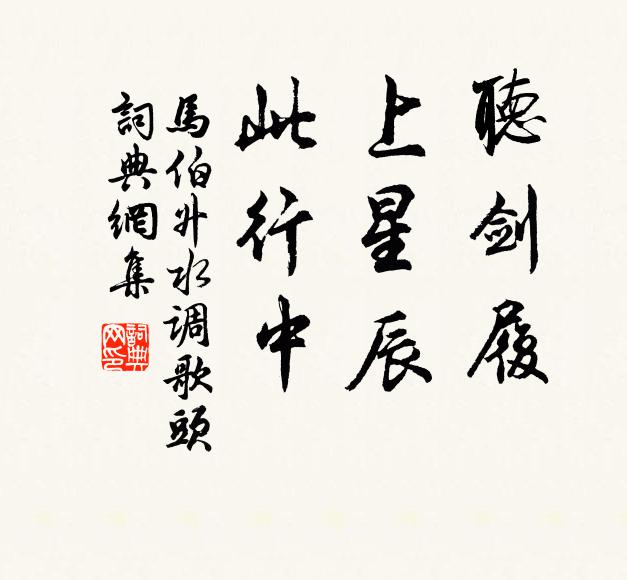 聽劍履
上星辰
此行中
馬伯升水调歌頭
詞典網集
詞典
网印